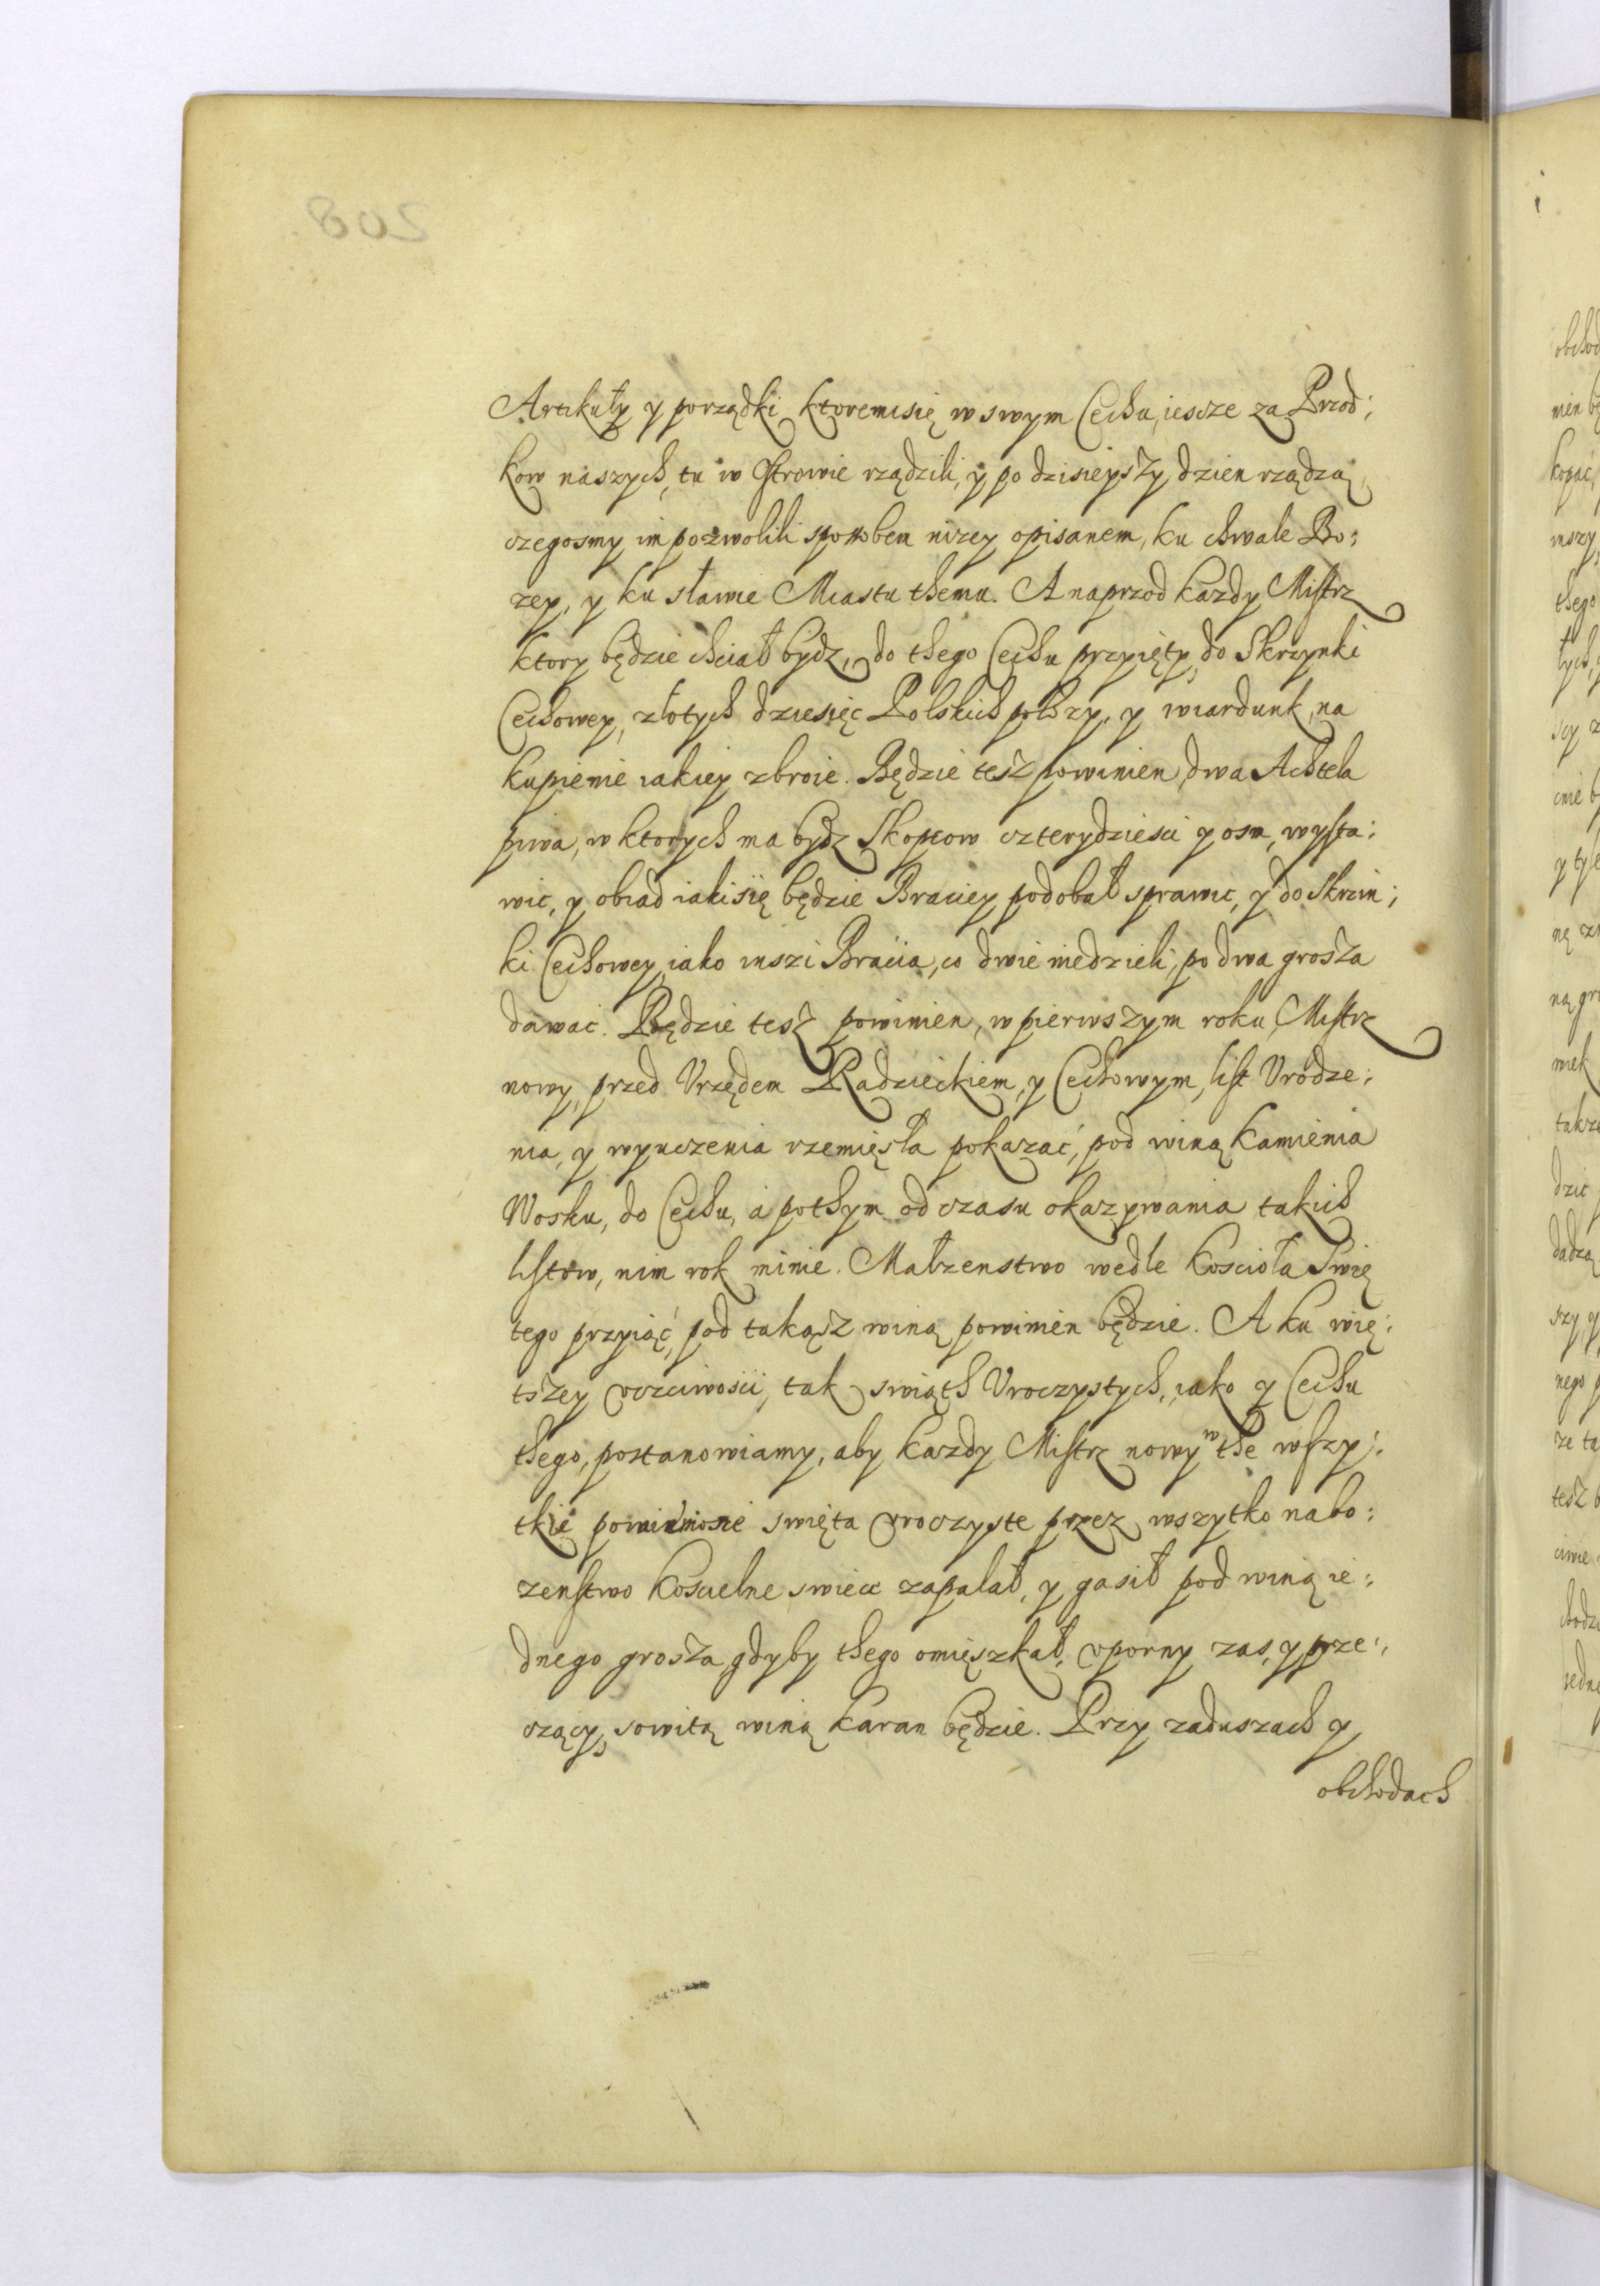 Artikuły y porządki ktoremisię w swym Cechu, iescze za Przod:
kow naszych, tu w Ostrowie rządzili, y po dzisieyszy dzien rządzą,
czegosmy im pozwolili sposobem nizey opisanem, ku chwale Bo:
zey, y ku sławie Miastu themu. A naprzod kazdy Mistrz
ktory będzie chciał bydz, do thego Cechu przyięty, do Skrzynki
Cechowey, złotych dziesięc Polskich położy, y wiardunk, na
kupienie iakiey zbroie. Będzie tesz powinien, dwa Achtela
piwa, w ktorych ma bydz Skopcow czterydziesci y osm, wysta:
wic, y obiad iakisię będzie Braciey podobał sprawic, y do Skrzin:
ki Cechowey, iako inszi Bracia, co dwie niedzieli, po dwa grosza
dawac. Będzie tesz powinien, w pierwszym roku, Mistrz
nowy, przed Vrzędem Radzieckiem, y Cechowym, list Vrodze:
nia, y wyuczenia rzemięsła pokazać, pod winą kamienia
Wosku, do Cechu, a pothym od czasu okazywania takich
listow, nim rok minie. Małzenstwo wedle Koscioła Swię
tego przyiąć, pod takąsz winą powinien będzie. A ku wię:
tszey vczciwosci, tak swiąth Vroczystych, iako y Cechu
thego, postanowiamy, aby kazdy Mistrz nowy w the wszy:
tkie powinnosie swięta vroczyste przez wszytko nabo:
zenstwo koscielne swiece zapalał, y gasił pod winą ie:
dnego grosza, gdyby thego omięszkał, vporny zas, y prze:
czący, sowitą winą karan będzie. Przy zaduszach y
obchodach